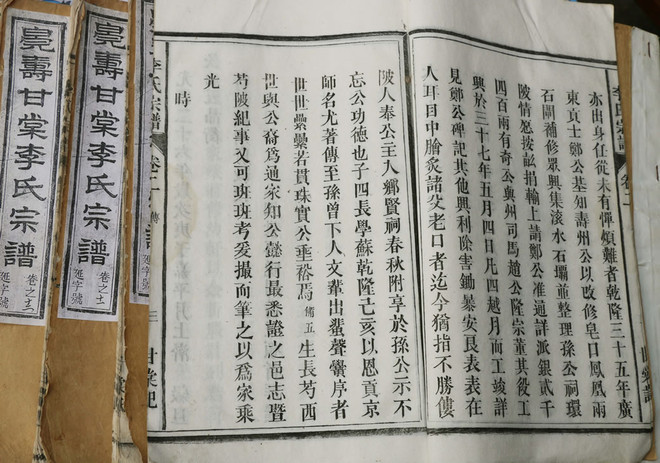 亳壽甘棠李氏宗譜
卷之
延字號
亳壽甘棠李氏宗譜
卷之
延字號
延字號
李氏宗譜
亦出身任從未有憚煩難者乾隆三十五年廣
東貢士鄭公基知壽州公以改修皂口鳳凰兩
石閘補修眾興集滾水石壩並整理孫公祠環
陵情慇按畝捐輸上請鄭公准通詳派銀貳千
四百兩有奇公與州司馬趙公隆宗董其役工
興於三十七年五月四日凡四越月而工竣詳
見鄭公碑記其他興利除害鋤暴安良表表在
人耳目中膾炙諸父老口者迄今猶指不勝僂
陂人奉公主入鄉賢祠春秋附享於孫公示不
忘公功德也子四長學蘇乾隆己亥以恩貢京
師名尤著傳至孫曾下人文輩出蜚聲黌序者
世世纍纍若貫珠實公垂裕焉備五生長芍西
世與公裔為通家知公懿行最悉證之邑志暨
芍陂紀事又可班班考爰撮而筆之以為家乘
光
時
李氏宗譜
傳
三
甘棠記